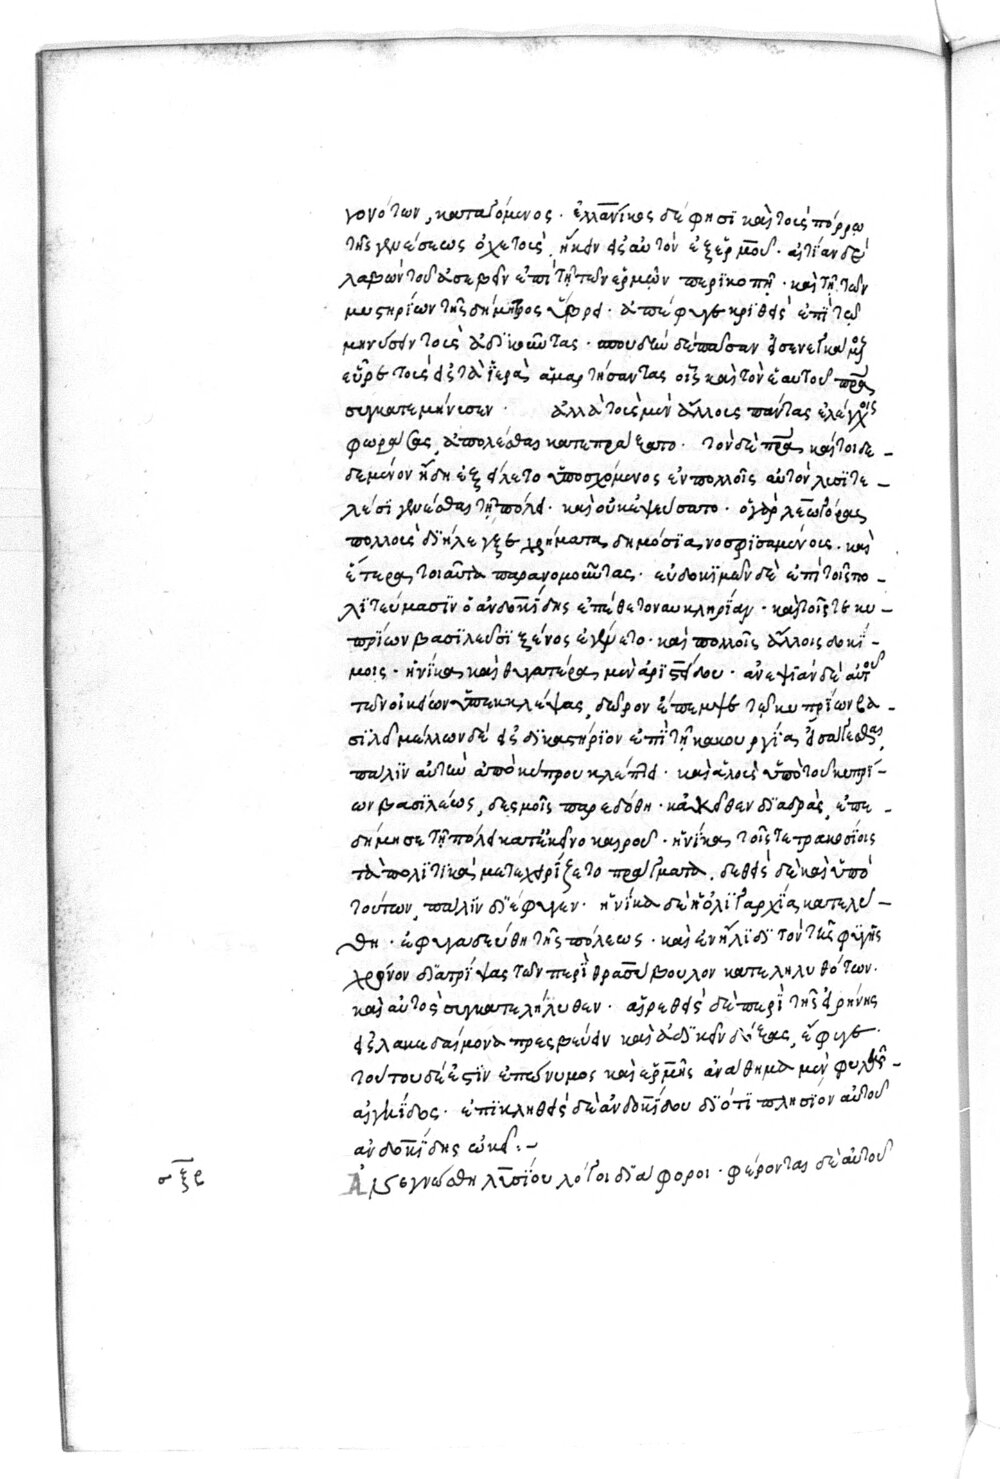 γονότων, καταγόμενος. ἑλλάνικος δέ φησι καὶ τοῖς πόρρω
τῆς γενέσεως ὀχετοῖς, ἥκειν εἰς αὐτὸν ἐξ ἑρμοῦ. αἰτίαν δὲ
λαβὼν τοῦ ἀσεβεῖν ἐπὶ τῇ τῶν ἑρμῶν περικοπῇ. καὶ τῇ τῶν
μυστηρίων τῆς δήμητρος ὕβρει. ἀπέφυγε κριθεὶς ἐπὶ τῷ
μηνύσειν τοὺς ἀδικοῦντας. σπουδὴν δὲ πᾶσαν εἰσενεγκάμενος
εὗρε τοὺς εἰς τὰ ἱερὰ ἁμαρτήσαντας οἷς καὶ τὸν ἑαυτοῦ πρα
συγκατεμήνυσεν. ἀλλὰ τοὺς μὲν ἄλλους πάντας ἐλέγχοις
φωράσας, ἀπολέσθαι κατεπράξατο. τὸν δὲ πρα καίτοι δε-
δεμένον ἤδη ἐξείλετο ὑποσχόμενος ἐν πολλοῖς αὐτὸν λυσιτε-
λέσι γενέσθαι τῇ πόλει. καὶ οὐκ ἐψεύσατο. ὁ γὰρ λεωγόρας
πολλοὺς διήλεγξε χρήματα δημόσια νοσφισαμένους. καὶ
ἕτερα τοιαῦτα παρανομοῦντας. εὐδοκιμῶν δὲ ἐπὶ τοῖς πο-
λιτεύμασιν ὁ ἀνδοκίδης ἐπέθετο ναυκληρίαν. καὶ τοῖς τε κυ-
πρίων βασιλεῦσι ξένος ἐγένετο. καὶ πολλοῖς ἄλλοις δοκί-
μοις. ἡνίκα καὶ θυγατέρα μὲν ἀριστείδου. ἀνεψιὰν δὲ αὐτοῦ
τῶν οἰκείων ὑπεκκλέψας, δῶρον ἔπεμψε τῷ κυπρίων βα-
σιλεῖ μέλλων δὲ εἰς δικαστήριον ἐπὶ τῇ κακουργίᾳ εἰσάγεσθαι,
πάλιν αὐτὴν ἀπὸ κύπρου κλέπτει. καὶ ἁλοὺς ὑπὸ τοῦ κυπρί-
ων βασιλέως, δεσμοῖς παρεδόθη. κἀκεῖθεν διαδρὰς, ἐπε
δήμησε τῇ πόλει κατ' ἐκεῖνο καιροῦ. ἡνίκα τοῖς τετρακοσίοις
τὰ πολιτικὰ μετεχειρίζετο πράγματα. δεθεὶς δὲ καὶ ὑπὸ
τούτων, πάλιν διέφυγεν. ἡνίκα δὲ ἡ ὀλιγαρχία κατελύ-
θη. ἐφυγαδεύθη τῆς πόλεως. καὶ ἐν ἤλιδι τὸν τῆς φυγῆς
χρόνον διατρίψας τῶν περὶ θρασύβουλον κατεληλυθότων.
καὶ αὐτὸς συγκατελήλυθεν. αἱρεθεὶς δὲ περὶ τῆς εἰρήνης
εἰς λακεδαίμονα πρεσβεύειν καὶ ἀδικεῖν δόξας, ἔφυγε.
τούτου δέ ἐστιν ἐπώνυμος καὶ ἑρμῆς ἀνάθημα μὲν φυλῆς-
αἰγηίδος. ἐπικληθεὶς δὲ ἀνδοκίδου διότι πλησίον αὐτοῦ
ἀνδοκίδης ᾤκει:-
σξβ Ἀνεγνώσθη λυσίου λόγοι διάφοροι. φέρονται δὲ αὐτοῦ